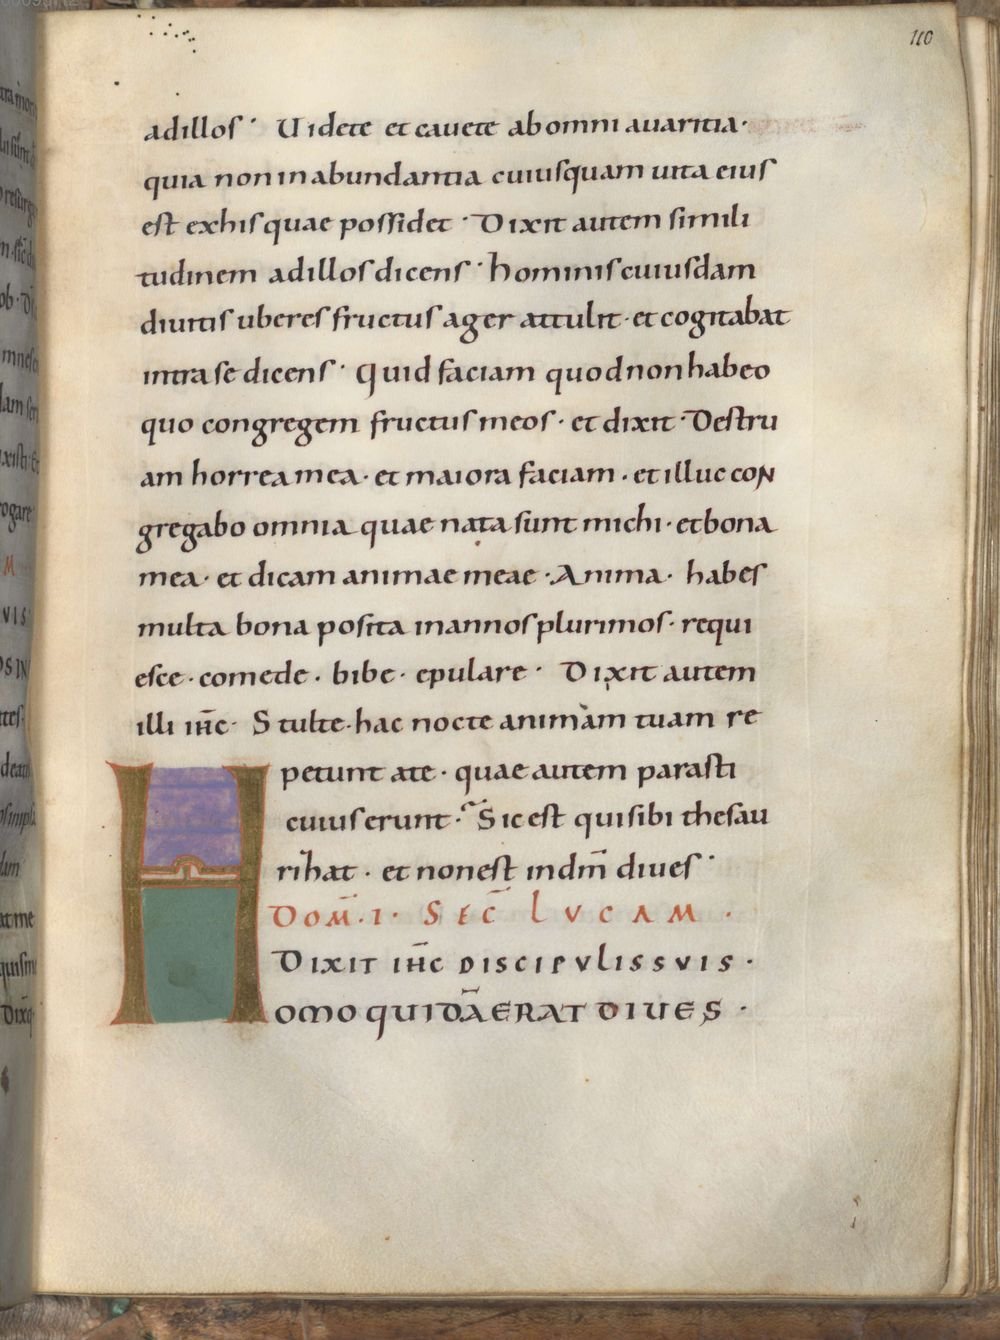 110
adillos· Uidete et cauete abomni auaritia·
quia noninabundantia cuiusquam uita eius
est exhisquae possidet· Dixit autem simili
tudinem adillosdicens· hominiscuiusdam
diuitis uberes fructus ager attulit· et cogitabat
intra se dicens· Quid faciam quodnonhabeo
quo congregem fructus meos· et dixit· Destru
am horrea mea· et maiora faciam· et illuc con
gregabo omnia quae nata sunt michi· etbona
mea· et dicam animae meae· Anima· habes
multa bona posita inannosplurimos· requi
esce· comede· bibe· epulare· Dixit autem
illi ih̅c· Stulte· hac nocte animam tuam re
petunt ate· quae autem parasti
cuiuserunt· Sic est quisibi thesau
rihat· et nonest indm̅ diues·
DOM̅· I· SEC̅ LVCAM·
DIXIT IH̅C DISCIPVLISSVIS·
HOMO QUIDA̅ ERAT DIUES·